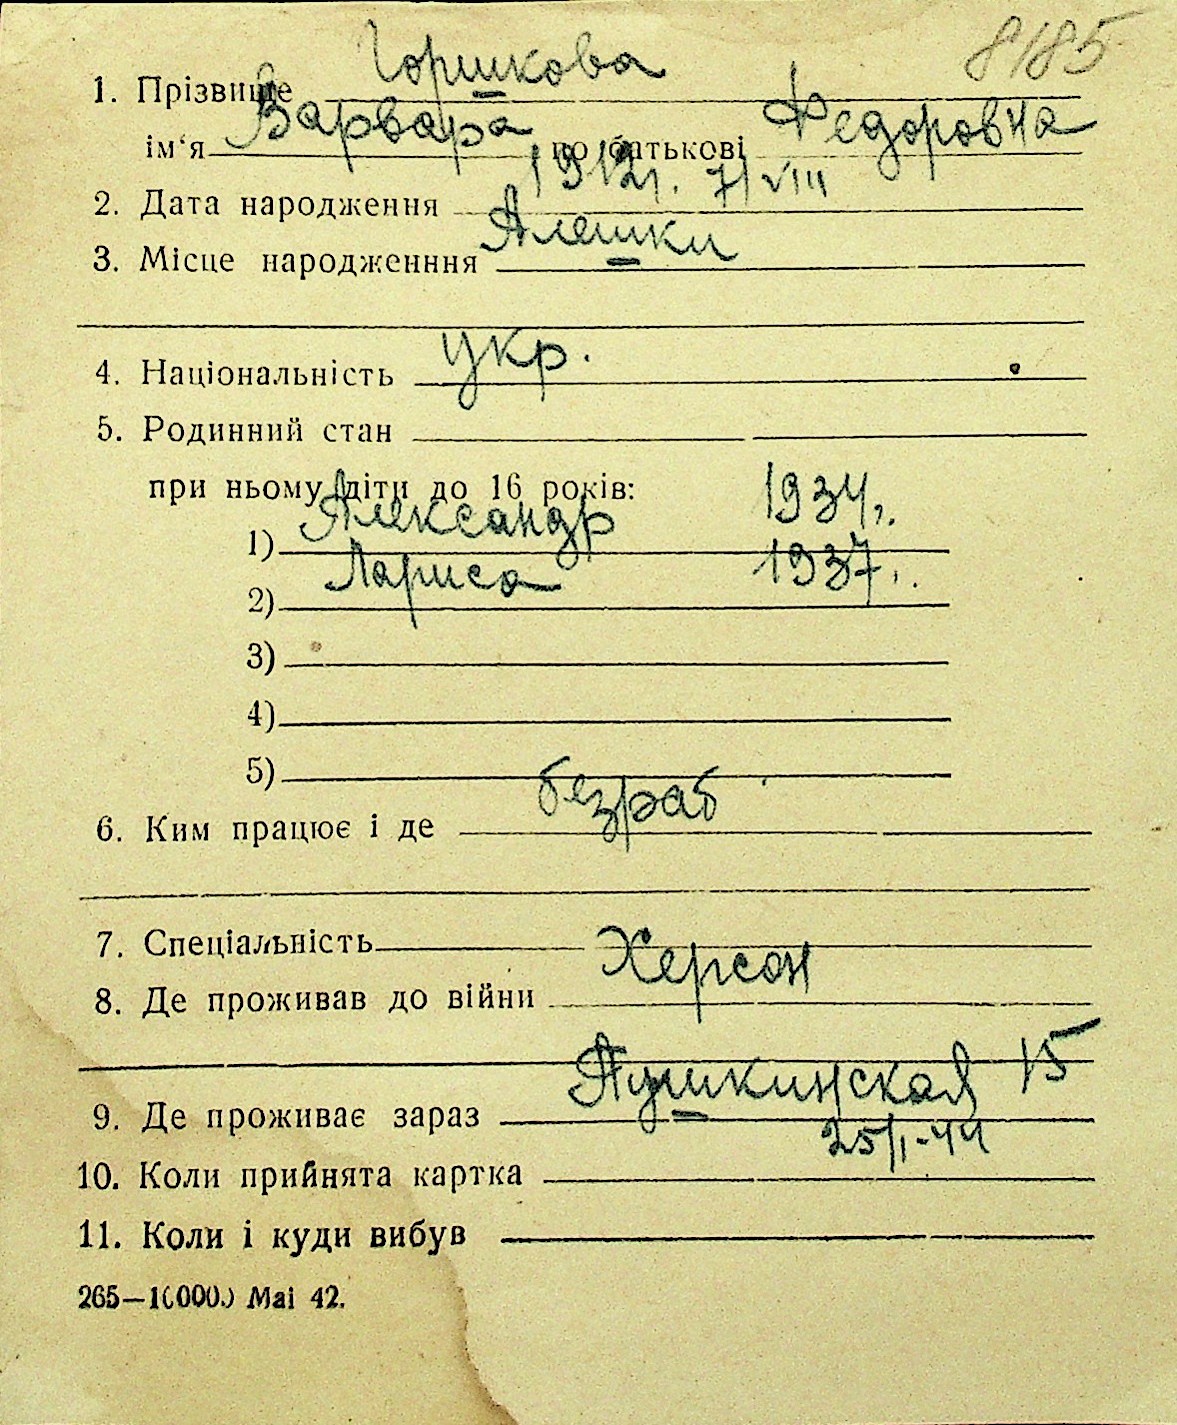 8185
1. Прізвище Горшкова
ім‘я Варвара по батькові Федоровна
2. Дата народження 1912г. 7/VIII
3. Місце народженння Алешки
4. Національність укр.
5. Родинний стан
при ньому діти до 16 років:
1) Александр 1934г.
2) Лариса 1937г.
3)
4)
5)
6. Ким працює і де безраб
7. Спеціальність
8. Де проживав до війни Херсон
9. Де проживає зараз Пушкинская 15
10. Коли прийнята картка 25/I-44
11. Коли і куди вибув
265—10000) Маі 42.